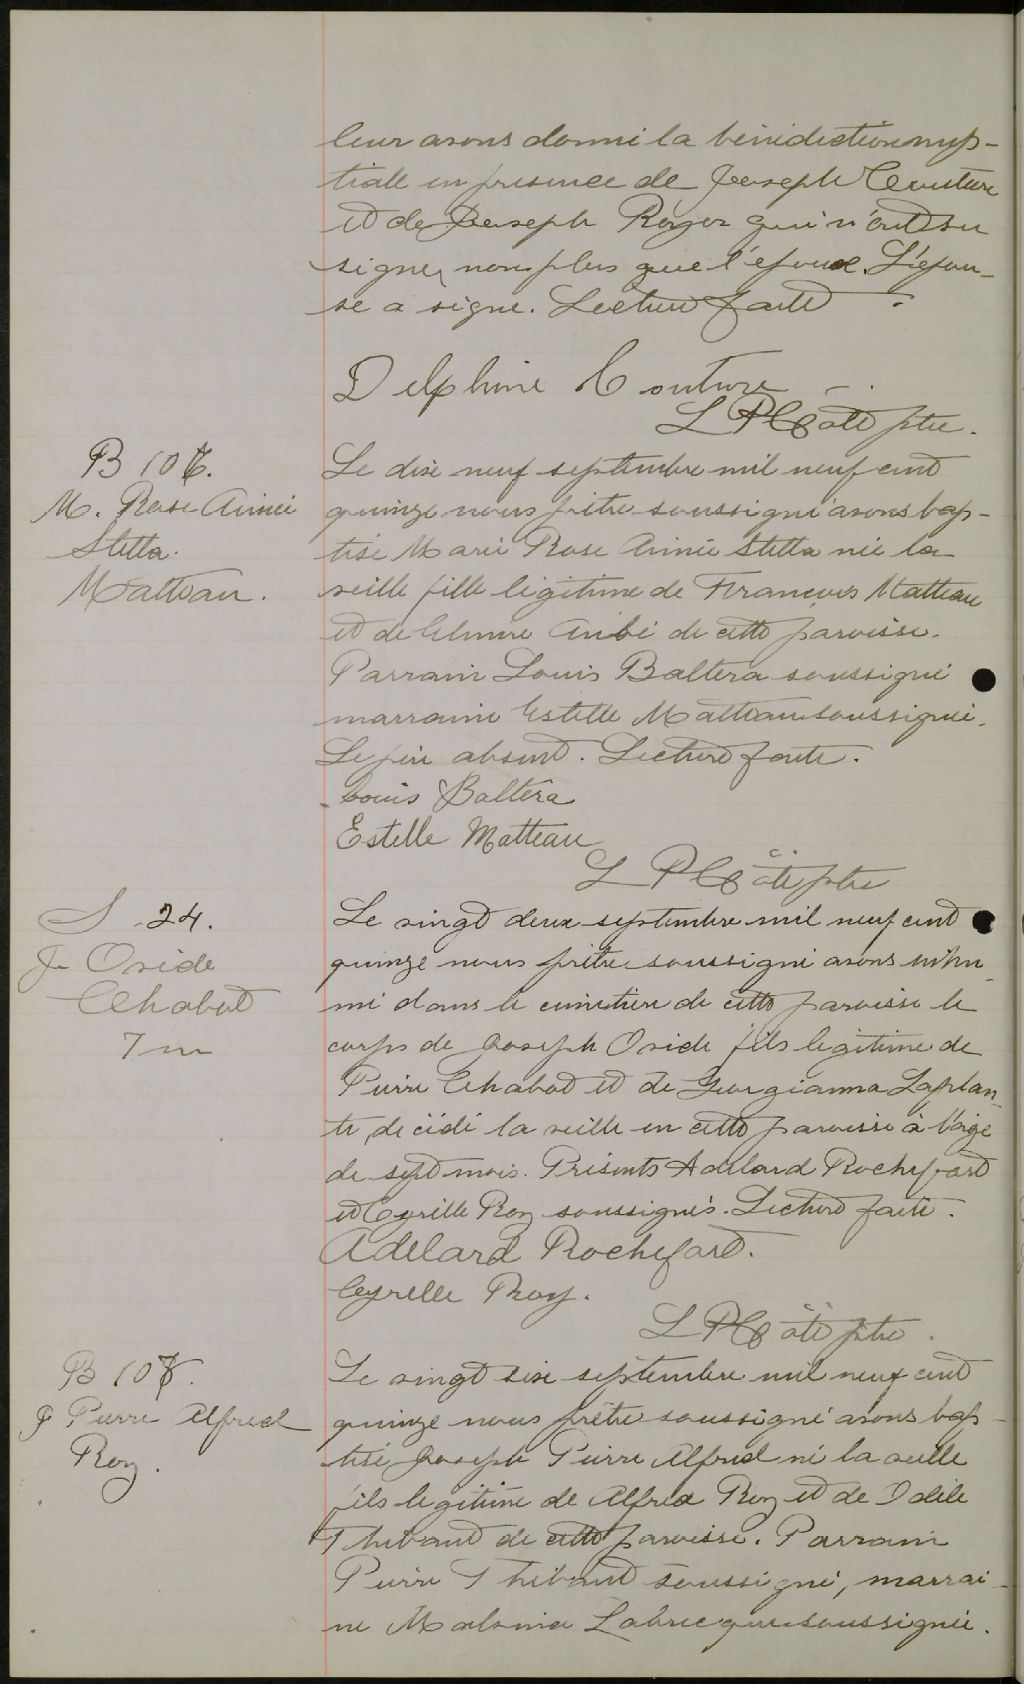 leur avons donné la bénédiction nup-
tiale en présence de Joseph Couture
et de Joseph Roger qui n'ont su
signer non plus que l'époux. L'épou-
se a signé. Lecture faite.
Delphine Couture
L P Côté ptre.
B 106.
M. Rose Aimée
Stella.
Matteau.
Le dix neuf septembre mil neuf cent
quinze nous prêtre soussigné avons bap-
tisé Marie Rose Aimée Stella née la
veille fille légitime de François Matteau
et de Aubé de cette paroisse.
Parrain Louis Baltera soussigné
marraine Estelle Matteau soussignée.
Le père absent. Lecture faite.
Louis Baltéra
Estelle Matteau
L P Côté ptre
S 24.
J. Ovide
Chabot
7 m
Le vingt deux septembre mil neuf cent
quinze nous prêtre soussigné avons inhu-
mé dans le cimetière de cette paroisse le
corps de Joseph Ovide fils légitime de
Pierre Chabot et de Georgianna Laplan-
te, décédé la veille en cette paroisse à l'âge
de sept mois. Présents Adélard Rochefort
et Cyrille Roy soussignés. Lecture faite.
Adélard Rochefort.
Cyrille Roy.
L P Côté ptre.
B 107.
J Pierre Alfred
Roy.
Le vingt six septembre mil neuf cent
quinze nous prêtre soussigné avons bap-
tisé Joseph Pierre Alfred né la veille
fils légitime de Alfred Roy et de Odile
Thibaut de cette paroisse. Parrain
Pierre Thibaut soussigné, marrai-
ne Malvina Labrecque soussignée.